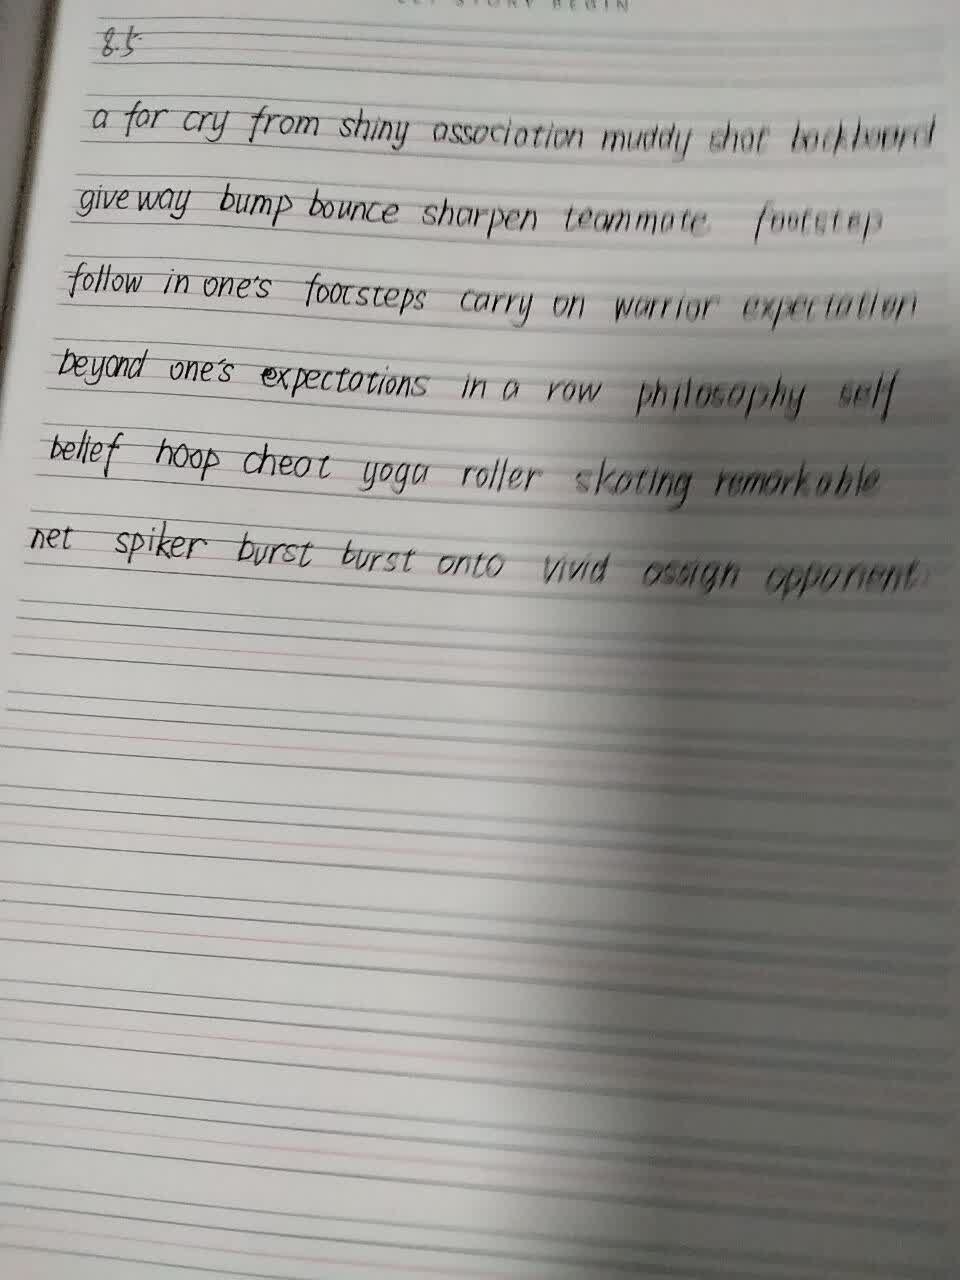 8.5
a far cry from shiny association muddy shot backboard
give way bump bounce sharpen teammate footstep
follow in one's footsteps carry on warrior expectation
beyond one's expectations in a row philosophy self
belief hoop cheat yoga roller skating remarkable
net spiker burst burst onto vivid assign opponent